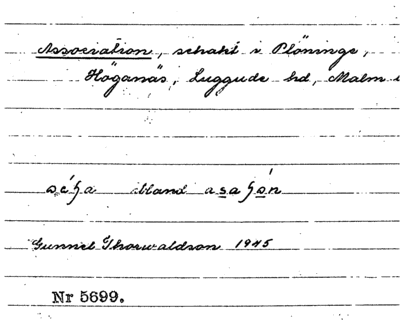 Association, schakt i Plöninge,
Höganäs, Luggude hd, Malm
ibland
Gunnel Thorwaldson 1945
Nr 5699.